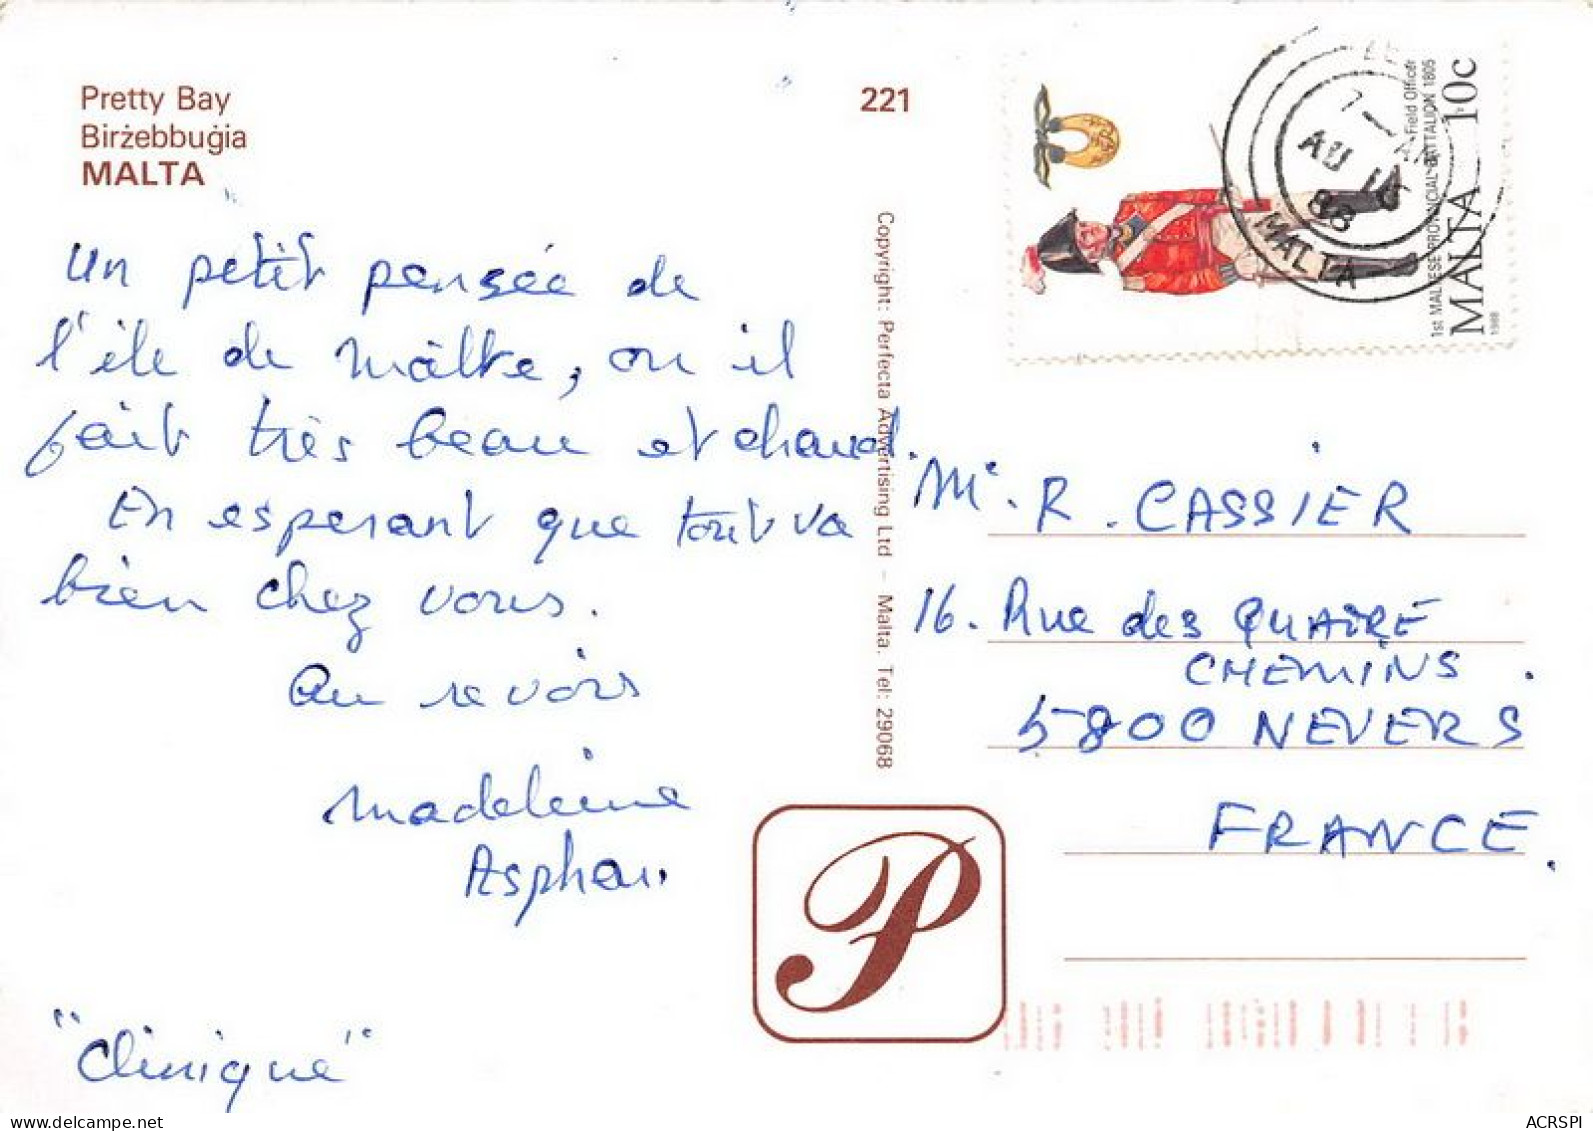 Pretty Bay
Birżebbuġia
MALTA
221
Un petit pensée de
l'île de Malte, ou il
fait très beau et chaud.
En esperant que tout va
bien chez vous.
Au revoir
Madeleine
"Clinique"
Copyright: Perfecta Advertising Ltd – Malta. Tel: 29068
1st MALTESE PROVINCIAL BATTALION 1805
Field Officer
MALTA 10c
1988
7 – AM
AU
88
MALTA
Mr. R. CASSIER
16. Rue des QUATRE
CHEMINS.
5800 NEVERS
FRANCE.
P
delcampe.net
ACRSPI